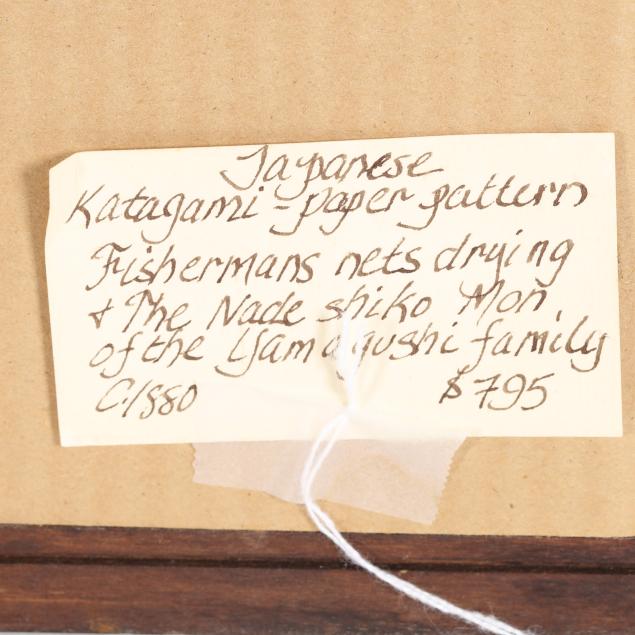 Japanese
Katagami - paper pattern
Fishermans nets drying
& The Nade shiko Mon,
of the Yamagushi family
C.1880 $795